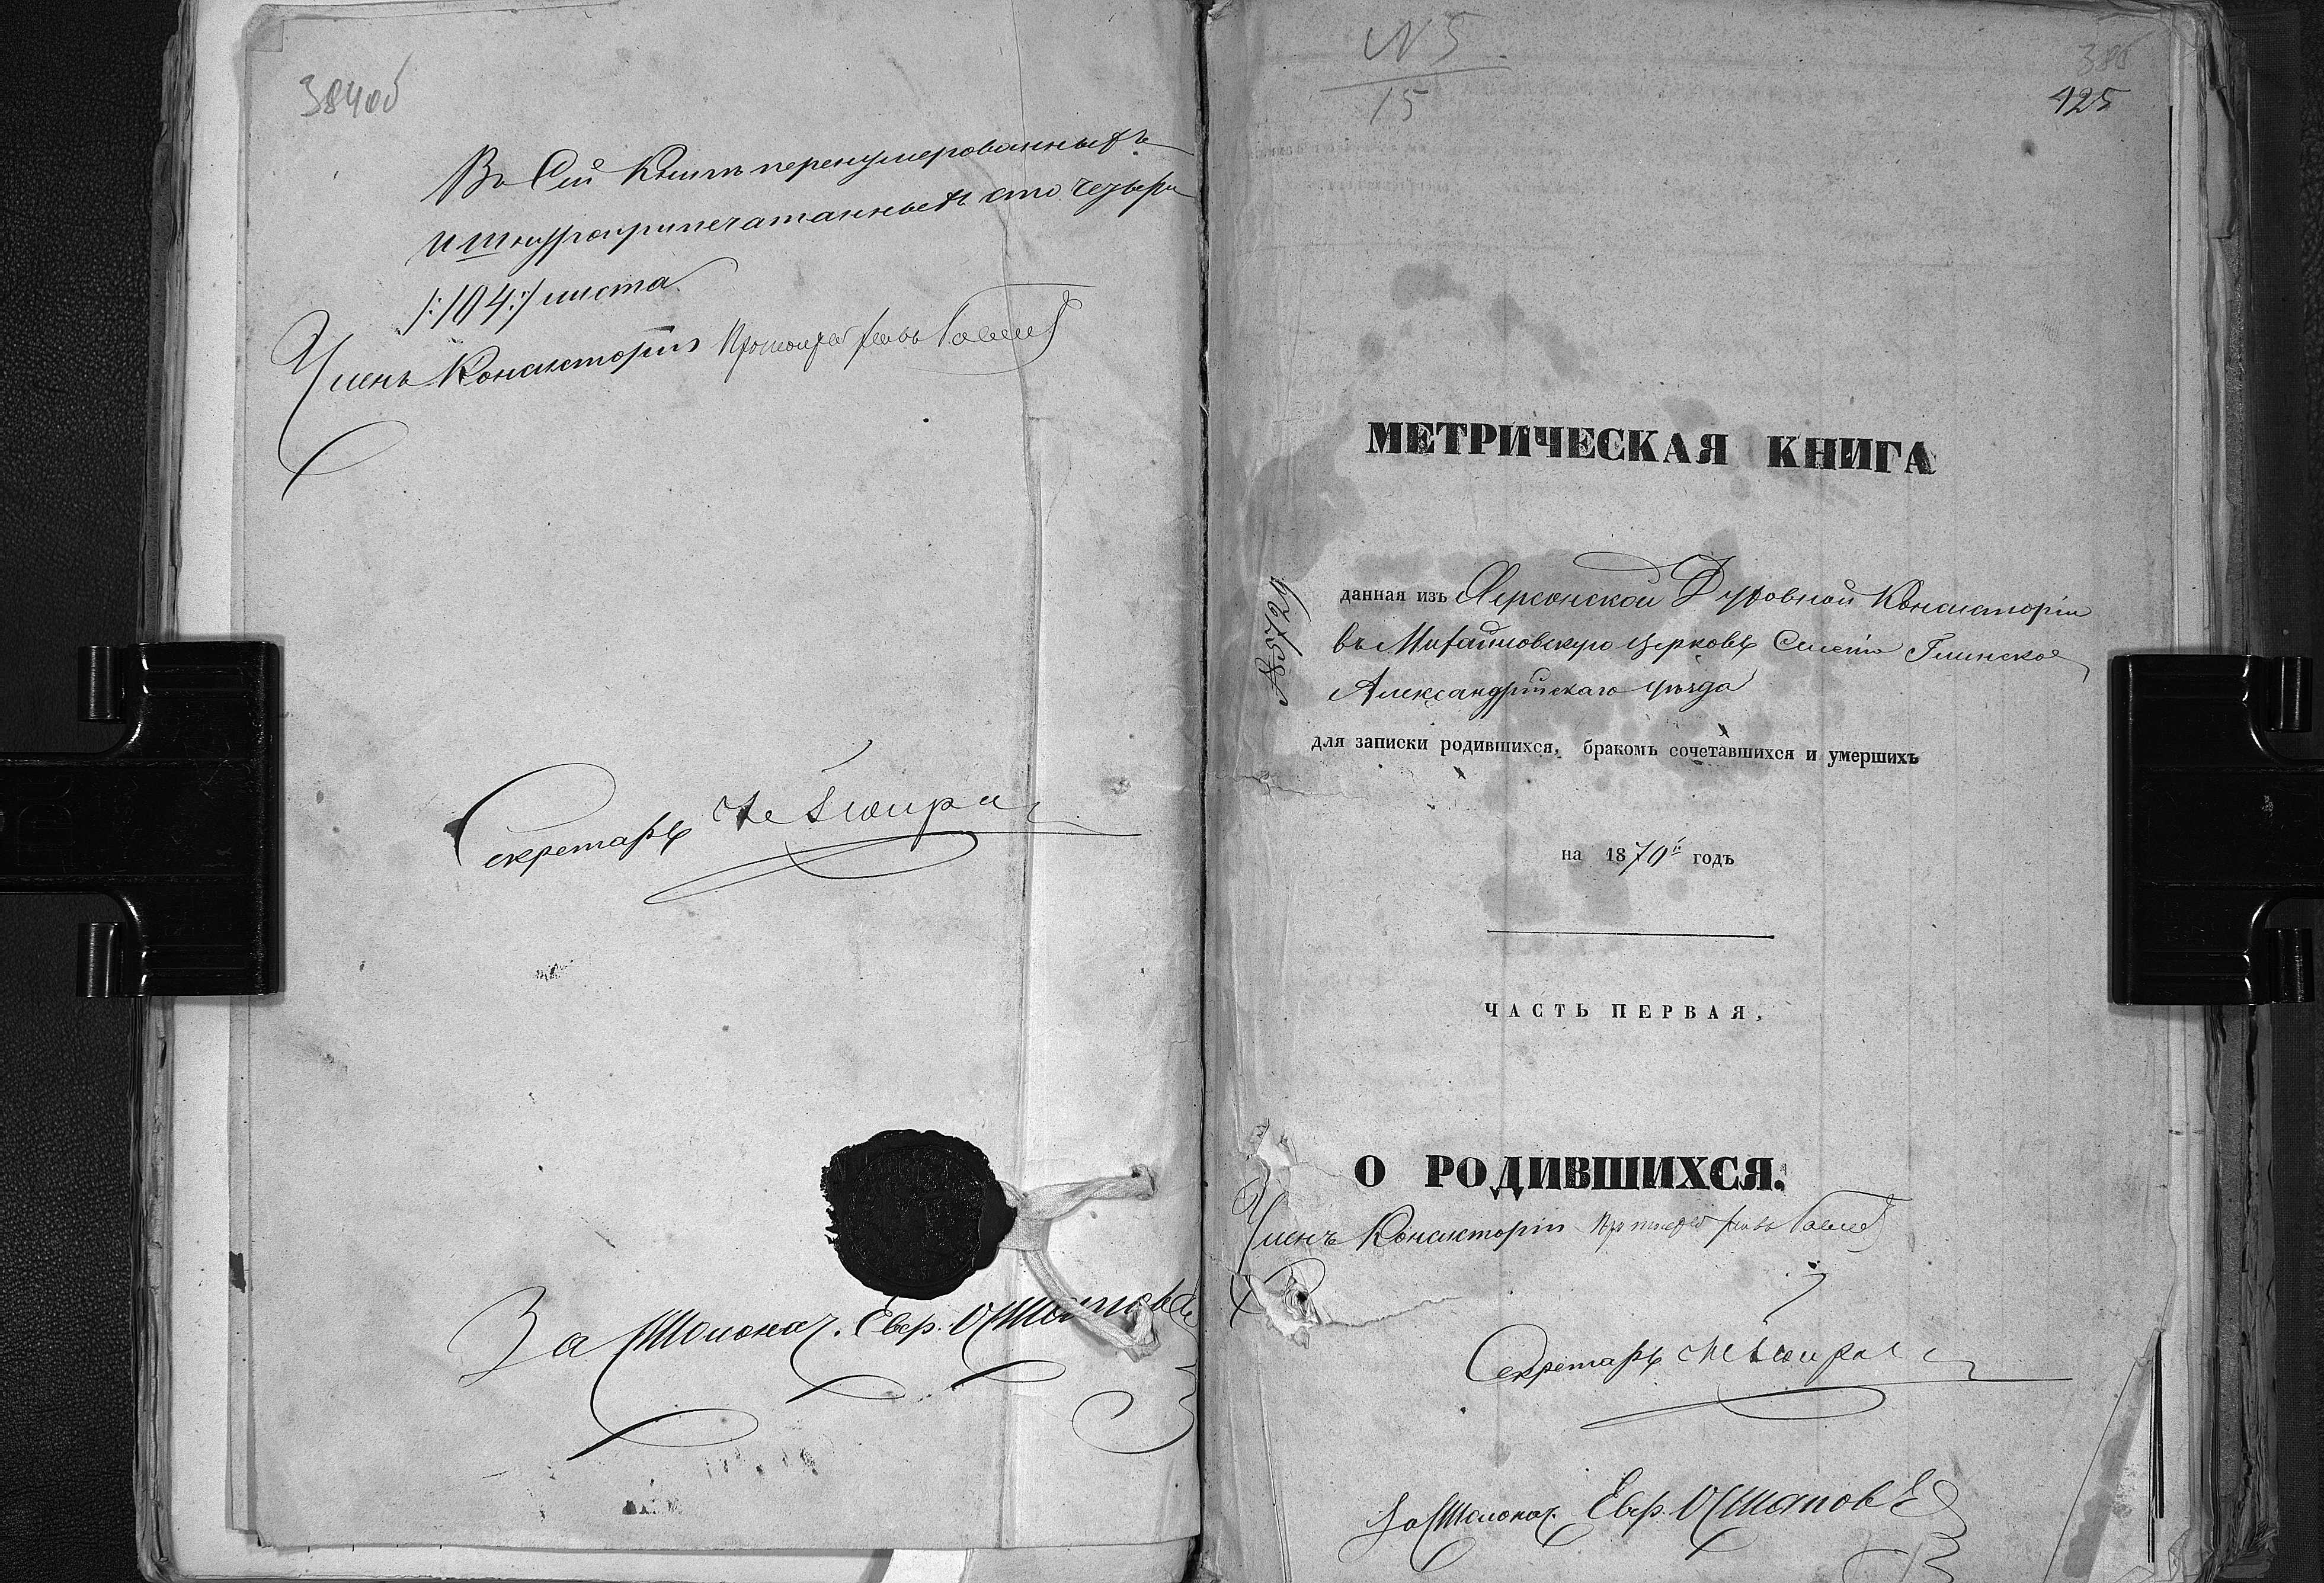 384об
Въ Сей Книгѣ перенумерованныхъ
и шнуроприпечатанныхъ сто четыри
/:104:/ листа
Членъ Консисторіи Протоіерей
Секретарь
За Столонач. Евр. Остаповъ
N 5
15
386
425
МЕТРИЧЕСКАЯ КНИГА
№5729
данная изъ Херсонской Духовной Консисторіи
въ Михайловскую церковь Селенія Глинское
Александрійскаго уѣзда
для записки родившихся, бракомъ сочетавшихся и умершихъ
на 1870й годъ
ЧАСТЬ ПЕРВАЯ,
О РОДИВШИХСЯ.
Членъ Консисторіи Протоіерей
Секретарь
За Столонач. Евр. Остаповъ